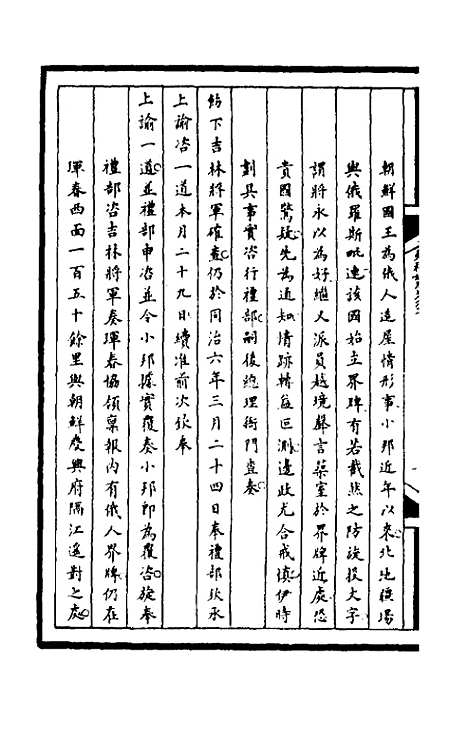 朝鮮國王為俄人造屋情形事小邦近年以來北地疆場
與俄羅斯毗連該國始立界牌有若截然之防旋投文字
謂將永以為好繼又派員越境聲言築室於界牌近處恐
貴國驚疑先為通知情跡轉益叵測邊政尤合戒慎伊時
劃具事實咨行禮部嗣後總理衙門查奏
飭下吉林將軍確查仍於同治六年三月二十四日奉禮部欽承
上諭咨一道本月二十九日續准前次欽奉
上諭一道並禮部申咨並令小邦據實覆奏小邦即為覆咨旋奉
禮部咨吉林將軍奏琿春協領稟報內有俄人界牌仍在
琿春西面一百五十餘里與朝鮮慶興府隔江遙對之處